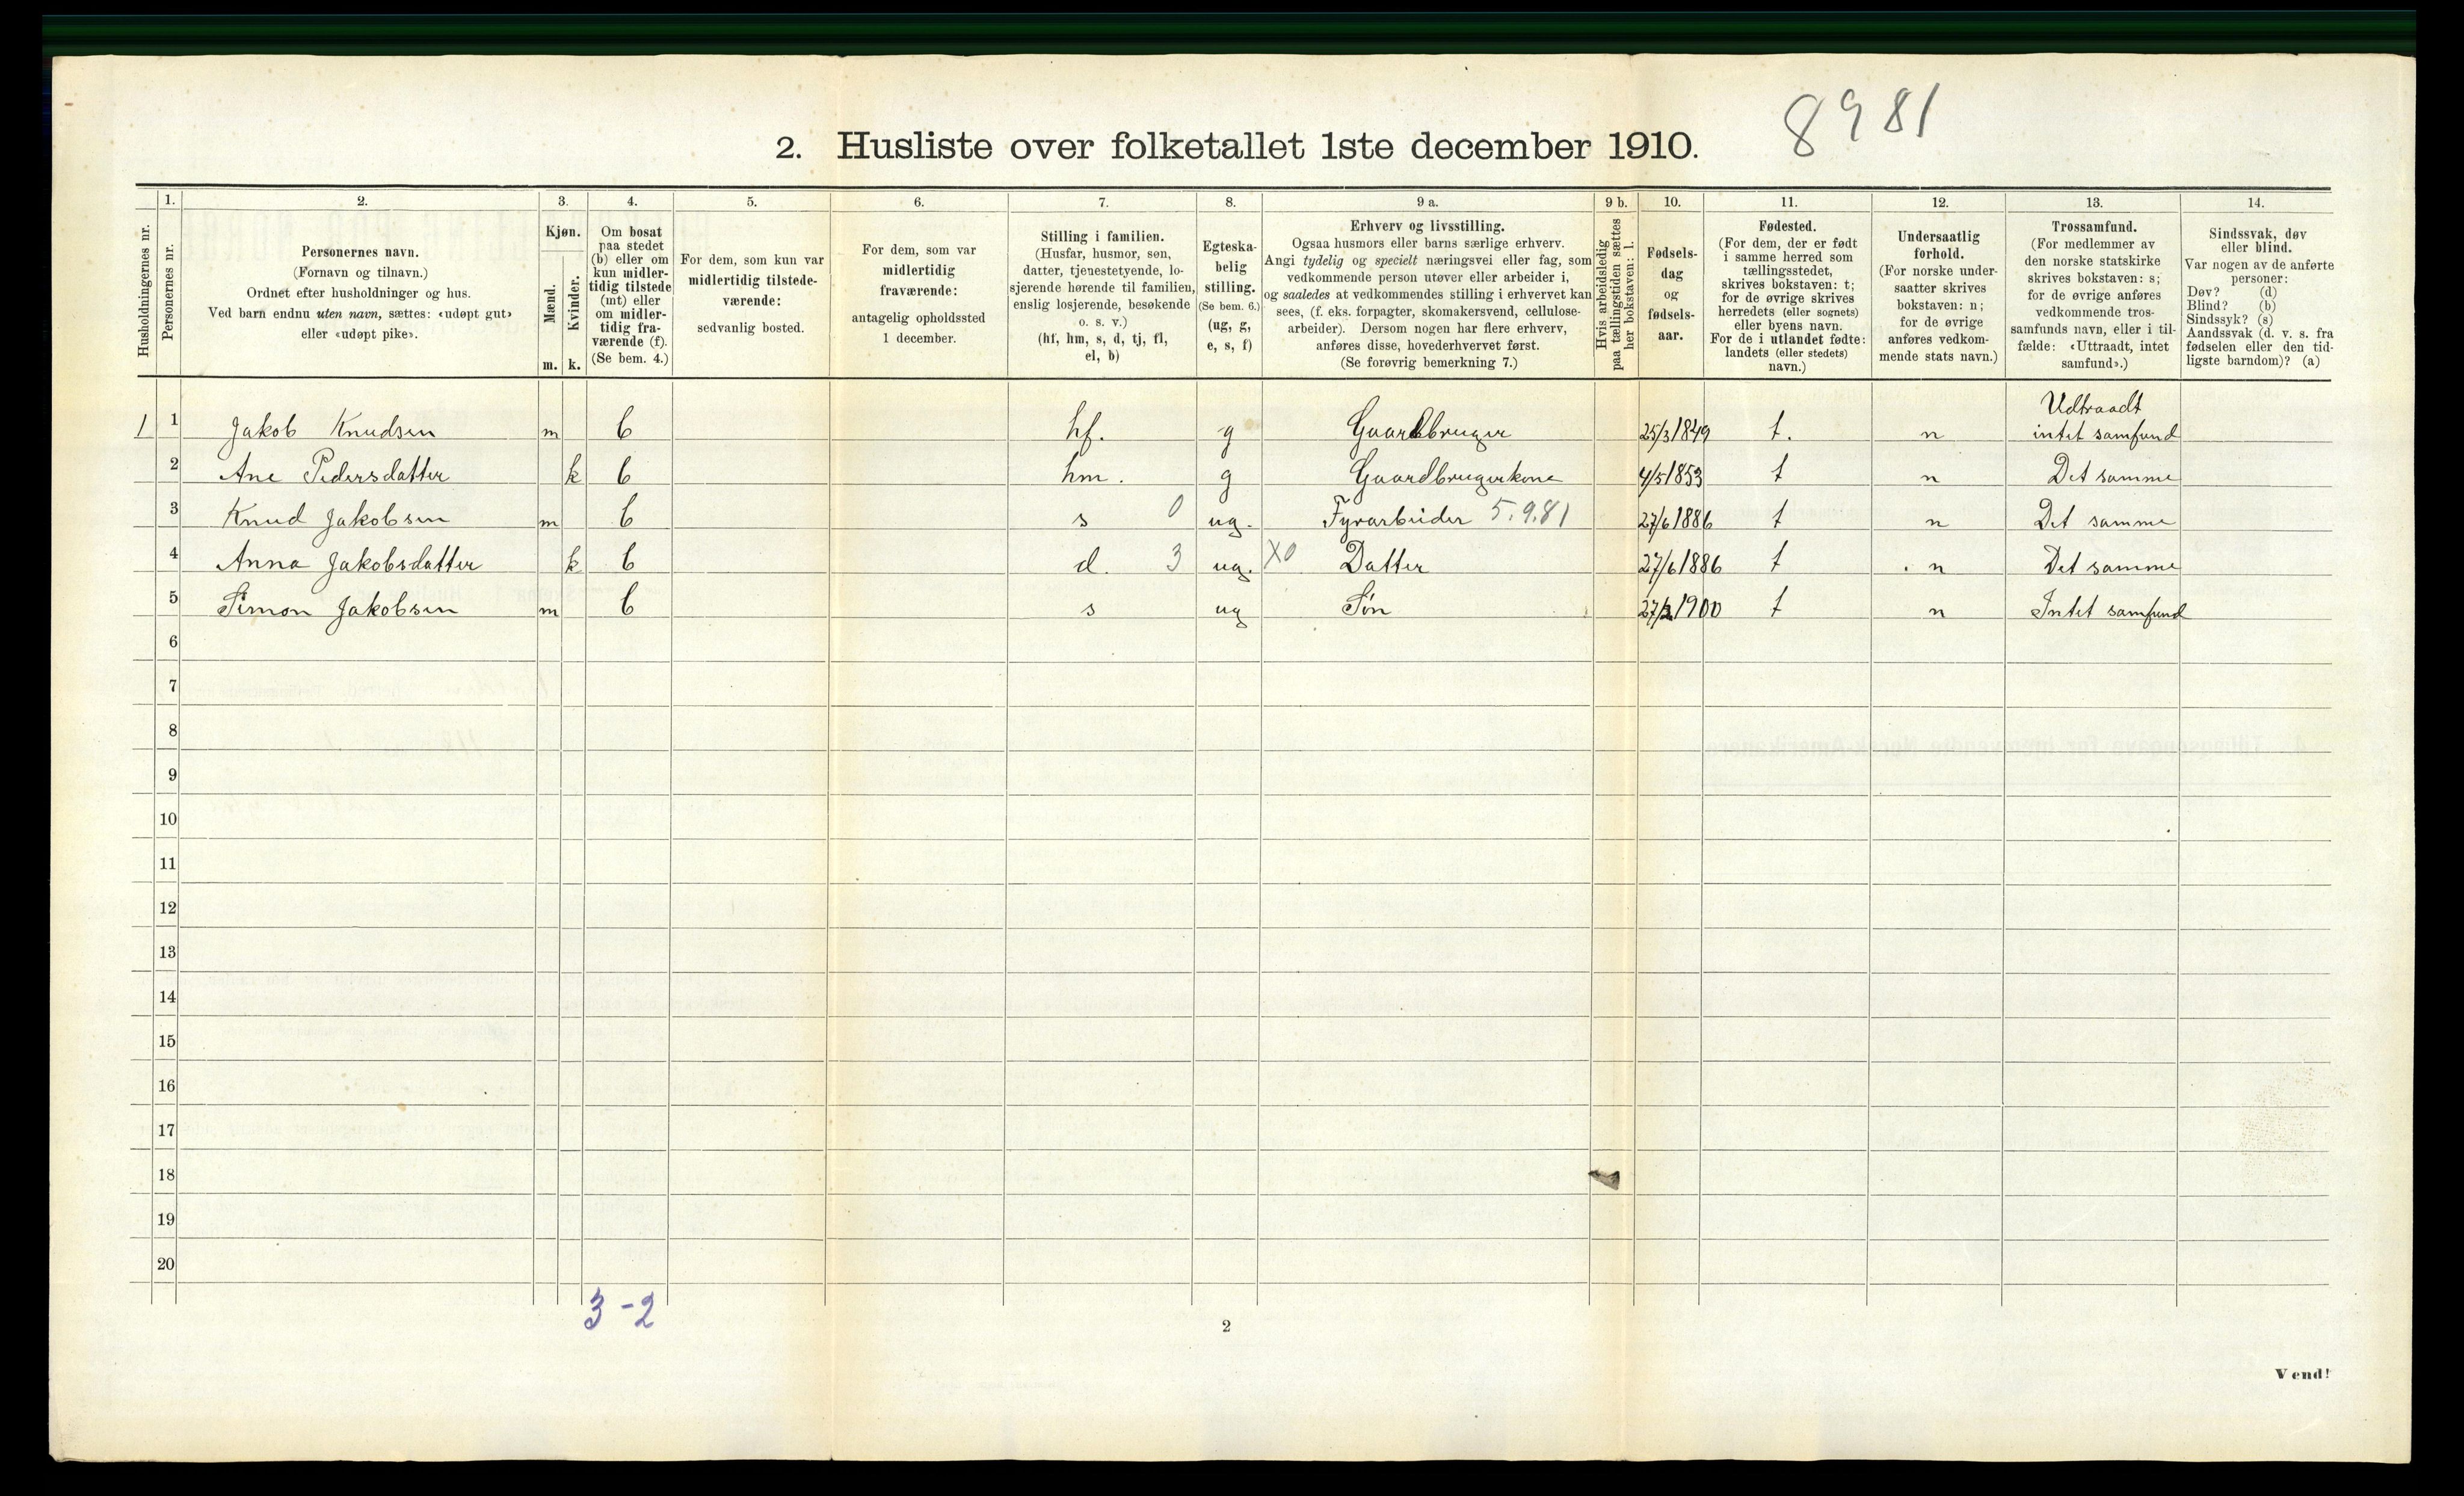 8981
2. Husliste over folketallet 1ste december 1910.
Husholdningernes nr.
1.
Personernes nr.
2.
Personernes navn.
(Fornavn og tilnavn.)
Ordnet efter husholdninger og hus.
Ved barn endnu uten navn, sættes: «udøpt gut»
eller «udøpt pike».
3.
Kjøn.
Mænd.
Kvinder.
m. k.
4.
Om bosat
paa stedet
(b) eller om
kun midler-
tidig tilstede
(mt) eller
om midler-
tidig fra-
værende (f).
(Se bem. 4.)
5.
For dem, som kun var
midlertidig tilstede-
værende:
sedvanlig bosted.
6.
For dem, som var
midlertidig
fraværende:
antagelig opholdssted
1 december.
7.
Stilling i familien.
(Husfar, husmor, søn,
datter, tjenestetyende, lo-
sjerende hørende til familien,
enslig losjerende, besøkende
o. s. v.)
(hf, hm, s, d, tj, fl,
el, b)
8.
Egteska-
belig
stilling.
(Se bem. 6.)
(ug, g,
e, s, f)
9 a.
Erhverv og livsstilling.
Ogsaa husmors eller barns særlige erhverv.
Angi tydelig og specielt næringsvei eller fag, som
vedkommende person utøver eller arbeider i,
og saaledes at vedkommendes stilling i erhvervet kan
sees, (f. eks. forpagter, skomakersvend, cellulose-
arbeider). Dersom nogen har flere erhverv,
anføres disse, hovederhvervet først.
(Se forøvrig bemerkning 7.)
9 b.
Hvis arbeidsledig
paa tællingstiden sættes
her bokstaven: l.
10.
Fødsels-
dag
og
fødsels-
aar.
11.
Fødested.
(For dem, der er født
i samme herred som
tællingsstedet,
skrives bokstaven: t;
for de øvrige skrives
herredets (eller sognets)
eller byens navn.
For de i utlandet fødte:
landets (eller stedets)
navn.)
12.
Undersaatlig
forhold.
(For norske under-
saatter skrives
bokstaven: n;
for de øvrige
anføres vedkom-
mende stats navn.)
13.
Trossamfund.
(For medlemmer av
den norske statskirke
skrives bokstaven: s;
for de øvrige anføres
vedkommende tros-
samfunds navn, eller i til-
fælde: «Uttraadt, intet
samfund».)
14.
Sindssvak, døv
eller blind.
Var nogen av de anførte
personer:
Døv? (d)
Blind? (b)
Sindssyk? (s)
Aandssvak (d. v. s. fra
fødselen eller den tid-
ligste barndom)? (a)
1 1 Jakob Knudsen m b hf. g Gaardbruger 25/3 1849 t. n Udtraadt intet samfund
2 Ane Pedersdatter k b hm. g Gaardbrugerkone 4/5 1853 t n Det samme
3 Knud Jakobsen m b s 0 ug. Fyrarbeider 5.9.81 27/6 1886 t n Det samme
4 Anna Jakobsdatter k b d. 3 ug. X0 Datter 27/6 1886 t n Det samme
5 Simon Jakobsen m b s ug Søn 27/2 1900 t n Intet samfund
6
7
8
9
10
11
12
13
14
15
16
17
18
19
20
3-2
2
Vend!